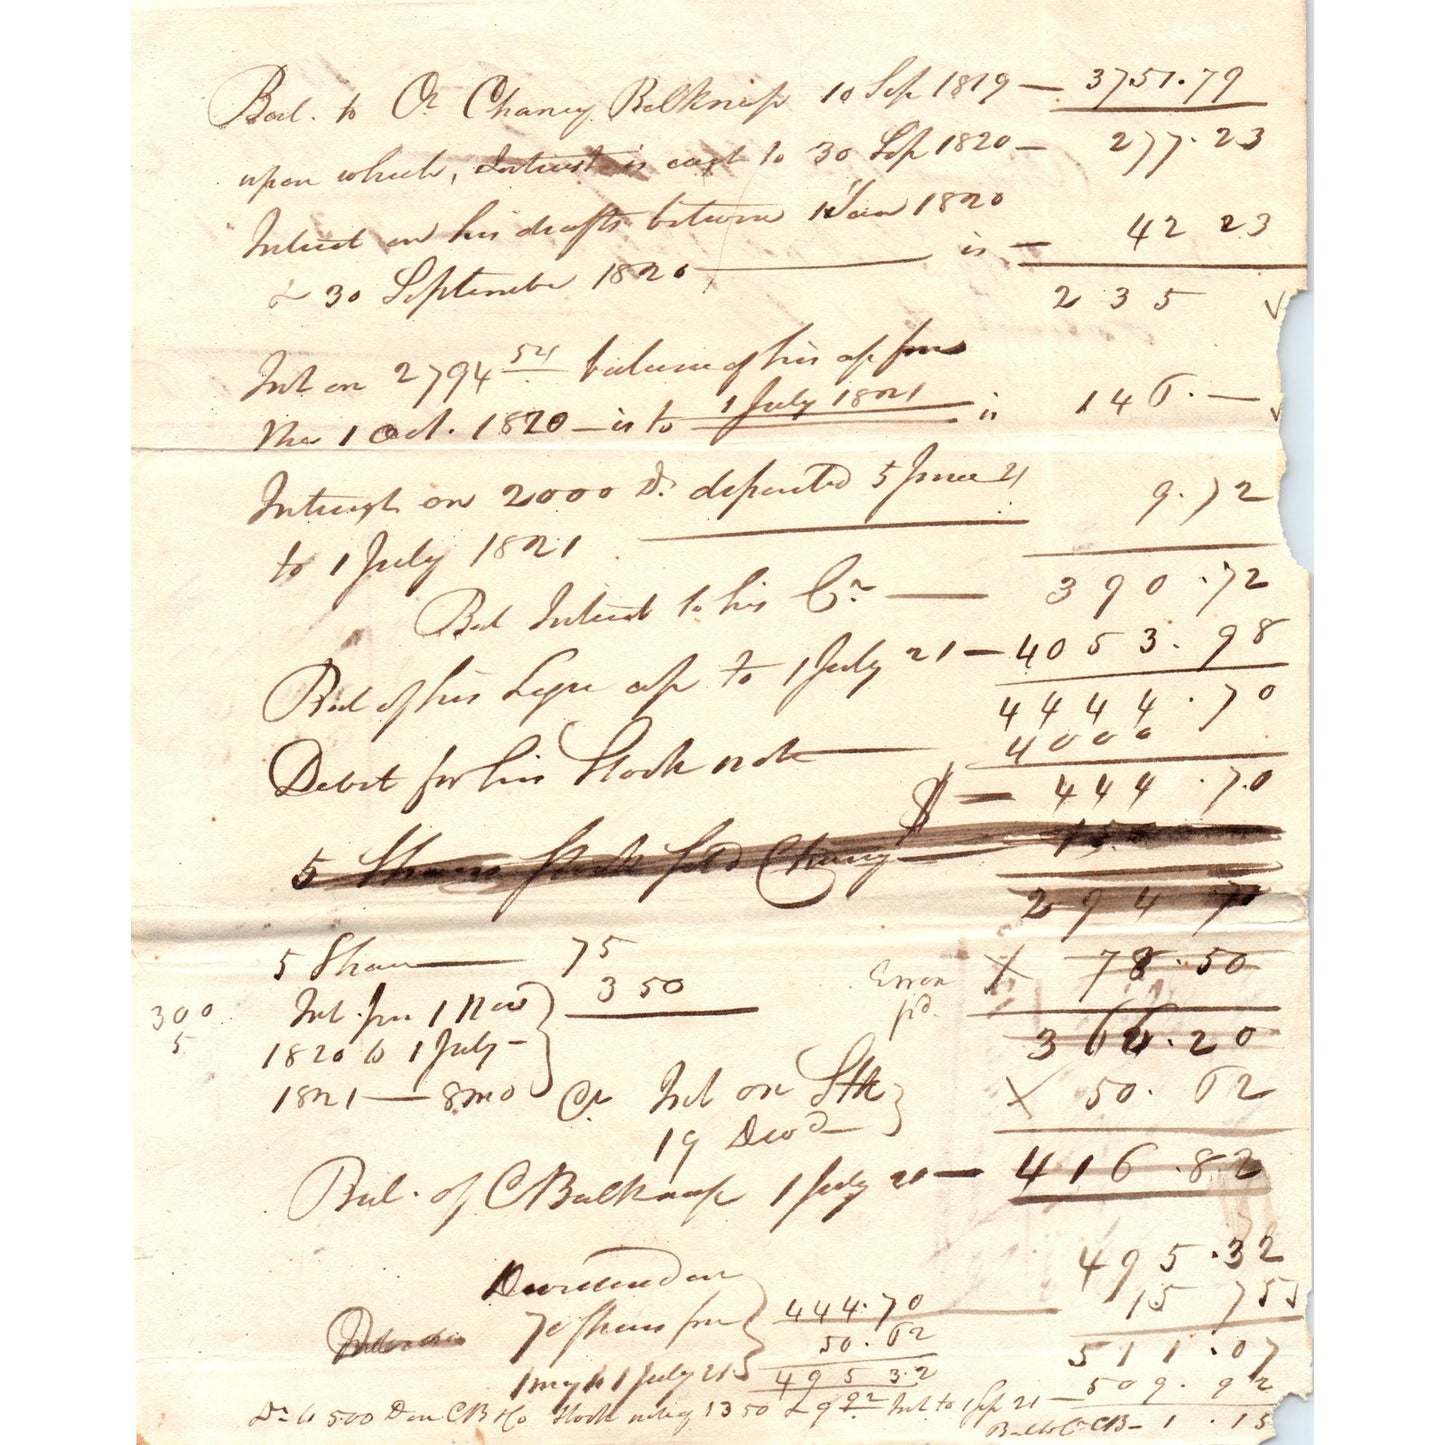 Bal. to Cr Chancy Belknap 10 Sep 1819 — 3751.79
upon which, Interest is cast to 30 Sep 1820 — 277.23
Interest on his drafts between 1 Jan 1820
& 30 September 1820 — is — 42 23
235
Int on 2794 54 balance of his a/c from
the 1 Oct. 1820 — is to 1 July 1821 is 146. —
Interest on 2000 D. deposited 5 June 21
to 1 July 1821 9.72
Bal Interest to his Cr — 390.72
Bal of his a/c to 1 July 21 — 4053.98
4444.70
Debit for his Stock note 4000
$ — 444.70
5 Shares Stock Chancy 150
294 70
5 Shares — 75
78.50
Int from 1 Nov 350
Error
300
5
1820 to 1 July —
1821 — 8 mo
20
Cr Int on Stk 50.62
19 Dwd
Bal. of C Belknap 1 July 21 — 416.82
495.32
Dividend on
70 Shares from 444.70 15 75
50.62
1 may to 1 July 21 495 32 511.07
Dr to 500 D on CB Stock note of 1350 & 9 92 Int to 1 Sep 21 — 509.92
Bal to Cr CB — 1.15